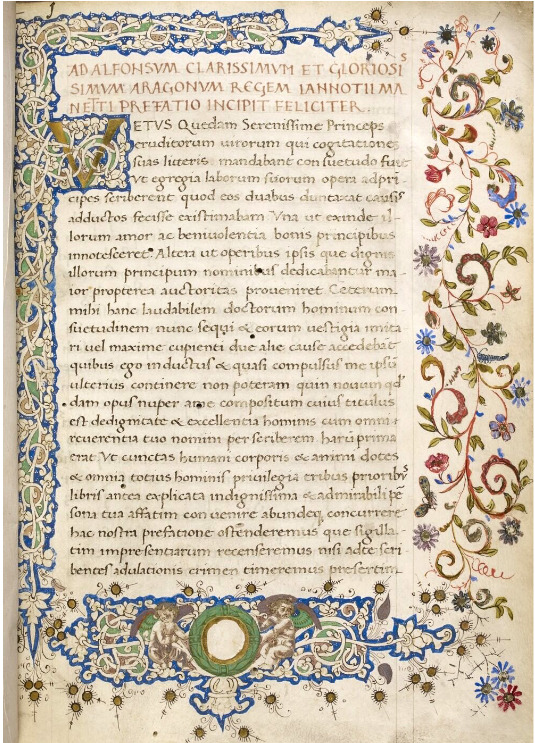 AD ALFONSVM CLARISSIMVM ET GLORIOSI
SIMVM ARAGONVM REGEM IANNOTII MA
NETTI PREFATIO INCIPIT FELICITER.
VETVS Quedam Serenissime Princeps
eruditorum uirorum qui cogitationes
suas litteris mandabant consuetudo fuit
Vt egregia laborum suorum opera ad pri
cipes scriberent quod eos duabus duntaxat causis
adductos fecisse existimabam Vna ut exinde il-
lorum amor ac beniuolentia bonis principibus
innotesceret. Altera ut operibus ipsis que dignis
illorum principum nominibus dedicabantur ma
ior propterea auctoritas proueniret Ceterum
mihi hanc laudabilem doctorum hominum con
suetudinem nunc sequi & eorum uestigia imita
ri uel maxime cupienti due alie cause accedebāt
quibus ego inductus & quasi compulsus me ipsū
ulterius continere non poteram quin nouum qd
dam opus nuper a me compositum cuius titulus
est de dignitate & excellentia hominis cum omni
reuerentia tuo nomini perscriberem harū prima
erat Vt cunctas humani corporis & animi dotes
& omnia totius hominis priuilegia tribus prioribꝰ
libris antea explicata in dignissima & admirabili pe
sona tua affatim conuenire abundeqꝫ concurrere
hac nostra prefatione ostenderemus que sigilla-
tim impresentiarum recenseremus nisi ad te scri
bentes adulationis crimen timeremus presertim